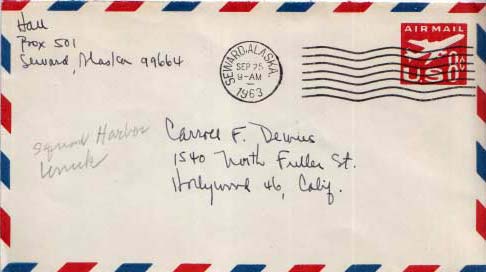 Hall
Box 501
Seward, Alaska 99664
SEWARD, ALASKA
SEP 25
9-AM
1963
AIR MAIL
US
Squaw Harbor
Carroll F.
1540 North Fuller St.
Hollywood 46, Calif.